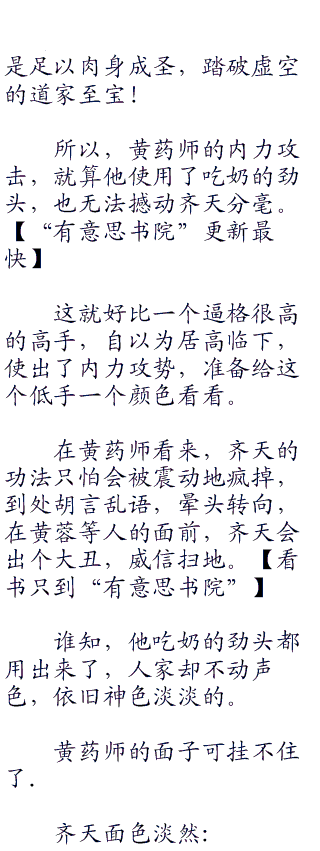 是足以肉身成圣，踏破虚空
的道家至宝！
所以，黄药师的内力攻
击，就算他使用了吃奶的劲
头，也无法撼动齐天分毫。
【“有意思书院”更新最
快】
这就好比一个逼格很高
的高手，自以为居高临下，
使出了内力攻势，准备给这
个低手一个颜色看看。
在黄药师看来，齐天的
功法只怕会被震动地疯掉，
到处胡言乱语，晕头转向，
在黄蓉等人的面前，齐天会
出个大丑，威信扫地。【看
书只到“有意思书院”】
谁知，他吃奶的劲头都
用出来了，人家却不动声
色，依旧神色淡淡的。
黄药师的面子可挂不住
了.
齐天面色淡然: